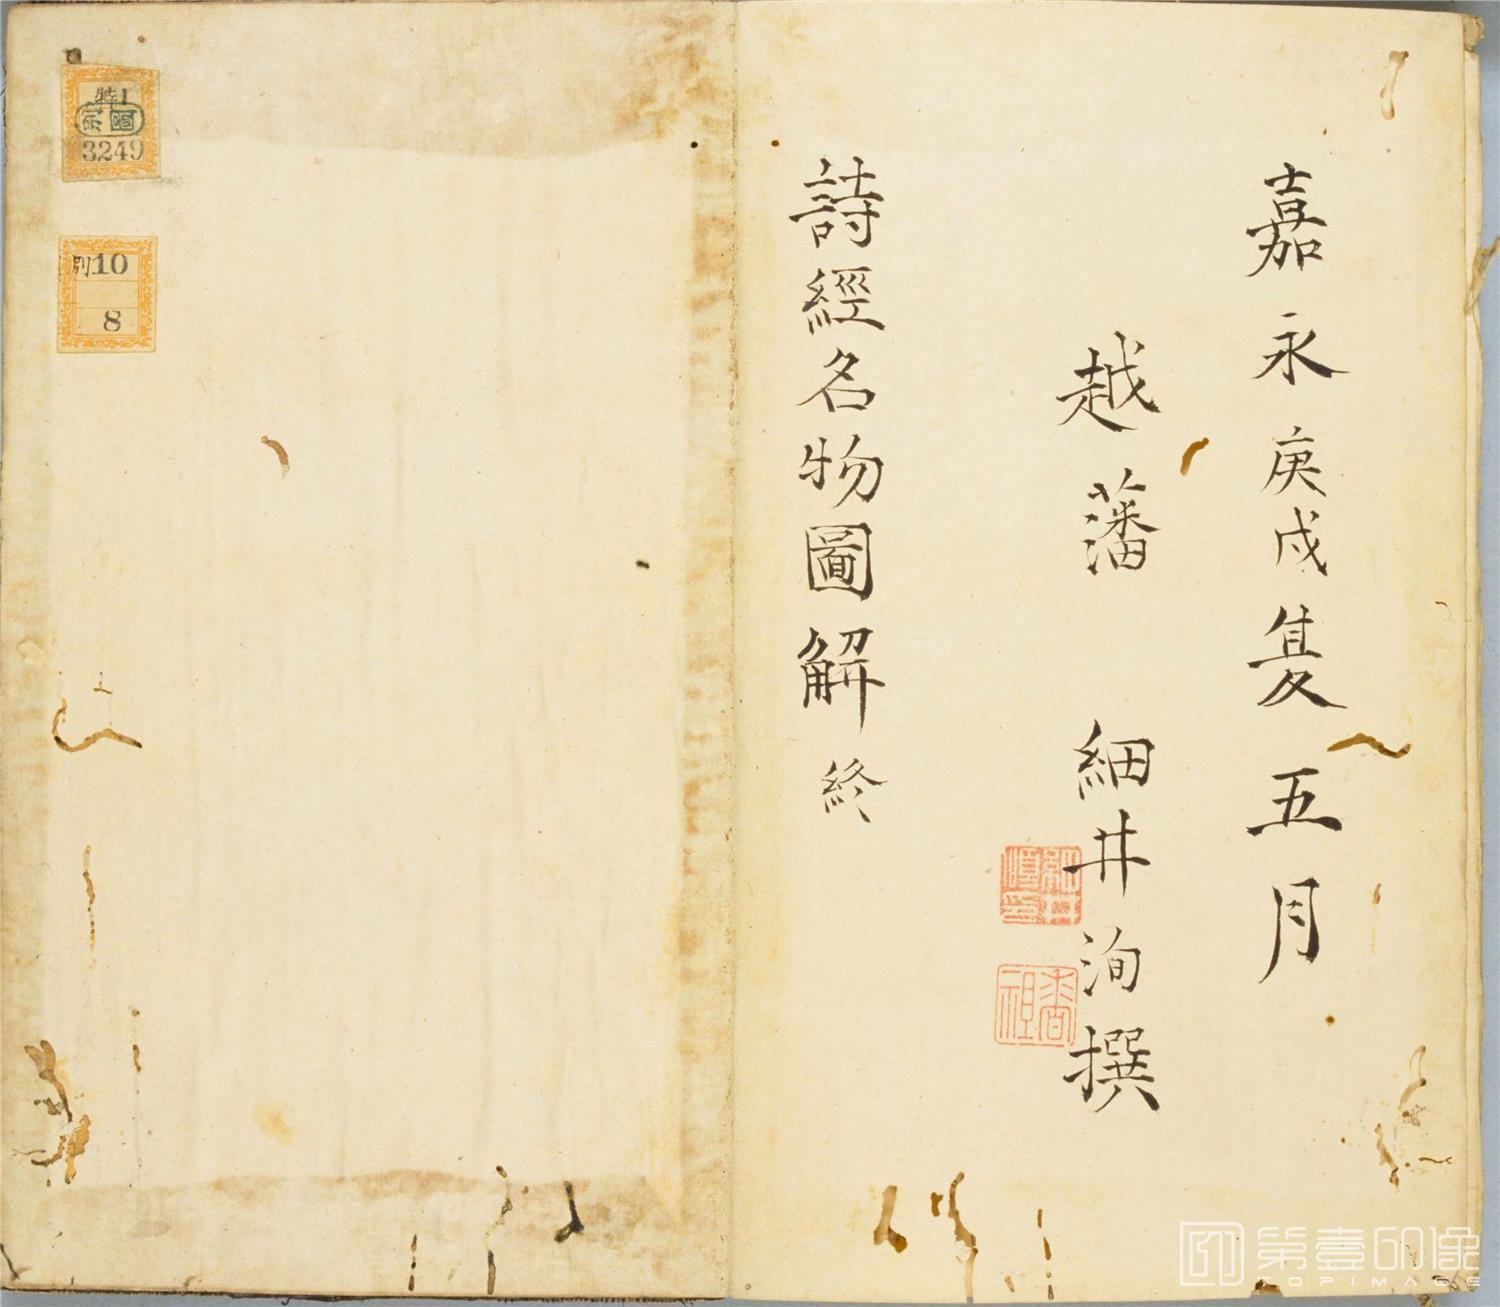 嘉永庚戌夏五月
越藩 細井洵撰
詩經名物圖解終
特1
3249
別10
8
第壹印像
TOPIMAGE